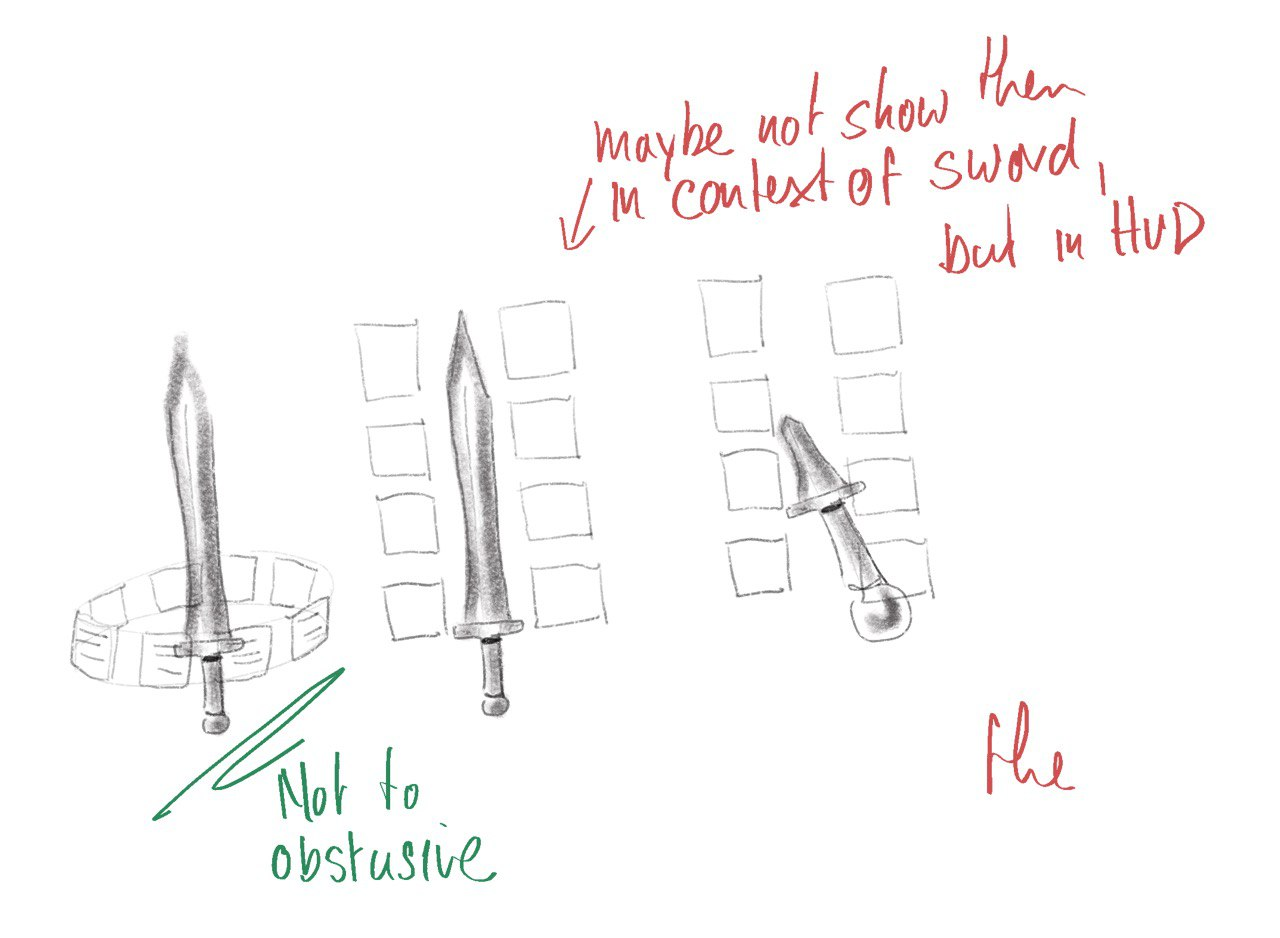 maybe not show them
in context of sword,
but in HUD
Not to
obstusive
the